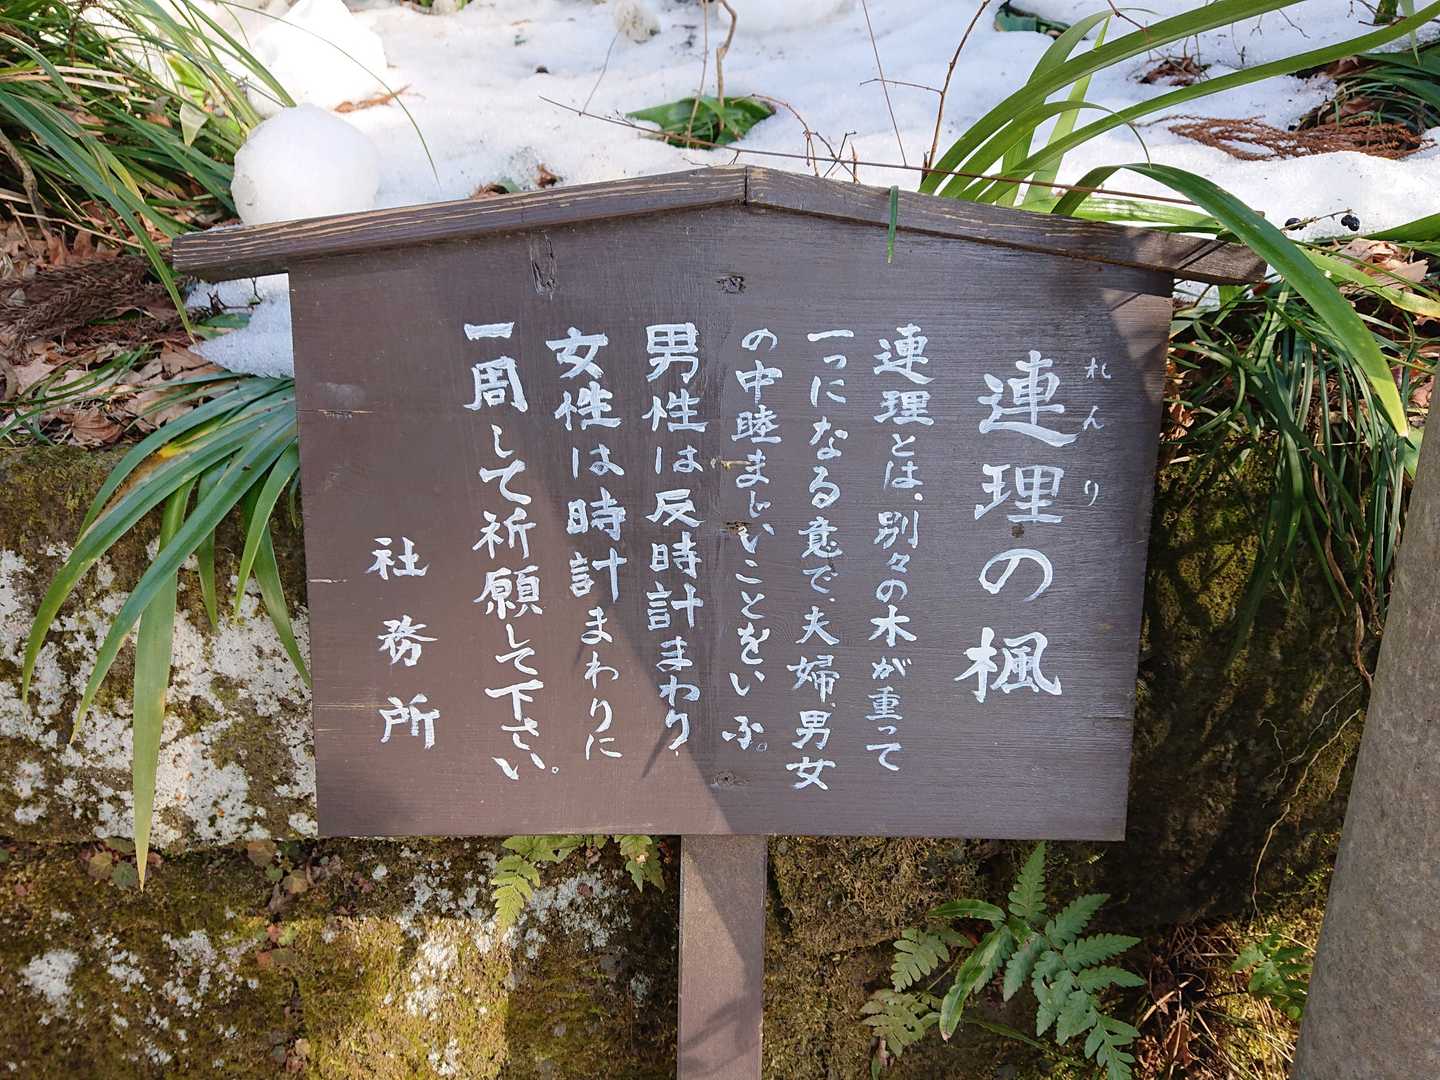 れんり
連理の楓
連理とは、別々の木が重って
一つになる意で、夫婦、男女
の中睦まじいことをいふ。
男性は反時計まわり
女性は時計まわりに
一周して祈願して下さい。
社務所